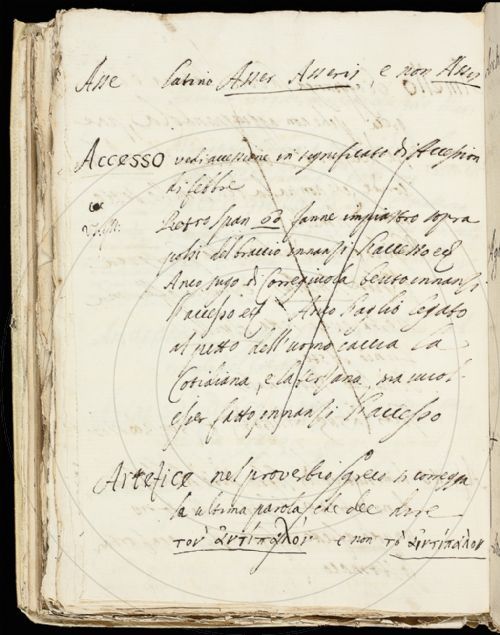 Asse latino Asser Asseris, e non Assis
Accesso vedi accessione in significato di Accession
di febbre
Pietro span fanne impiastro sopra
polsi del braccio innanzi l'accesso
Anco sugo di correggiuola beuto innanzi
l'accesso Anco l'aglio legato
al petto dell'uomo caccia la
cotidiana, e la terzana, ma vuol
esser fatto innanzi l'accesso
Artefice nel proverbio greco si corregga
la ultima parola che dee dire
τοὺ ἀντίπαλον e non τὸ ἀντίπαλον